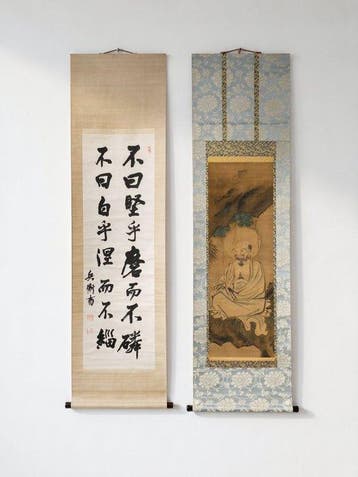 不曰堅乎磨而不磷
不曰白乎涅而不緇